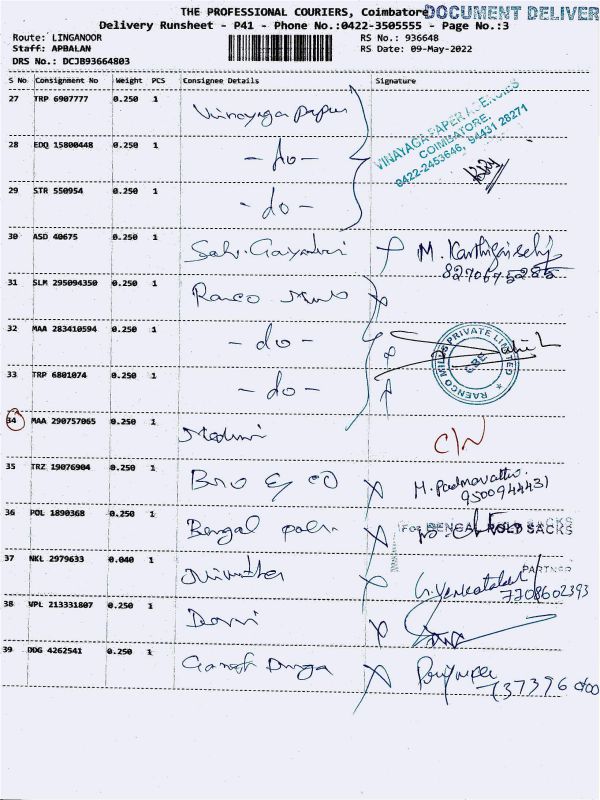 THE PROFESSIONAL COURIERS, Coimbatore
DOCUMENT DELIVER
Delivery Runsheet - P41 - Phone No.:0422-3505555 - Page No.:3
Route: LINGANOOR
RS No.: 936648
Staff: APBALAN
RS Date: 09-May-2022
DRS No.: DCJB93664803
S No Consignment No Weight PCS Consignee Details Signature
27 TRP 6907777 0.250 1 Vinayaga Paper
VINAYAGA PAPER AGENCIES
COIMBATORE.
0422-2453646, 94431 28271
28 EDQ 15800448 0.250 1 - do -
29 STR 550954 0.250 1 - do -
30 ASD 40675 0.250 1 Gayathri M.
31 SLM 295094350 0.250 1 Ranco
32 MAA 283410594 0.250 1 - do -
RAENCO MILLS PRIVATE LIMITED
CBE
33 TRP 6801074 0.250 1 - do -
34 MAA 290757065 0.250 1 C/N
35 TRZ 19076904 0.250 1 Bro & co M. Padmavathi
9500944431
36 POL 1890368 0.250 1 Bengal
For BENGAL ROLD SACKS
PARTNER
37 NKL 2979633 0.040 1 G. Venkatalak
7708602393
38 VPL 213331807 0.250 1
39 DDG 4262541 0.250 1 Ganesh Durga